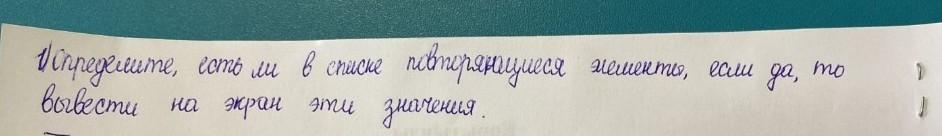 1) Определите, есть ли в списке повторяющиеся элементы, если да, то
вывести на экран эти значения.